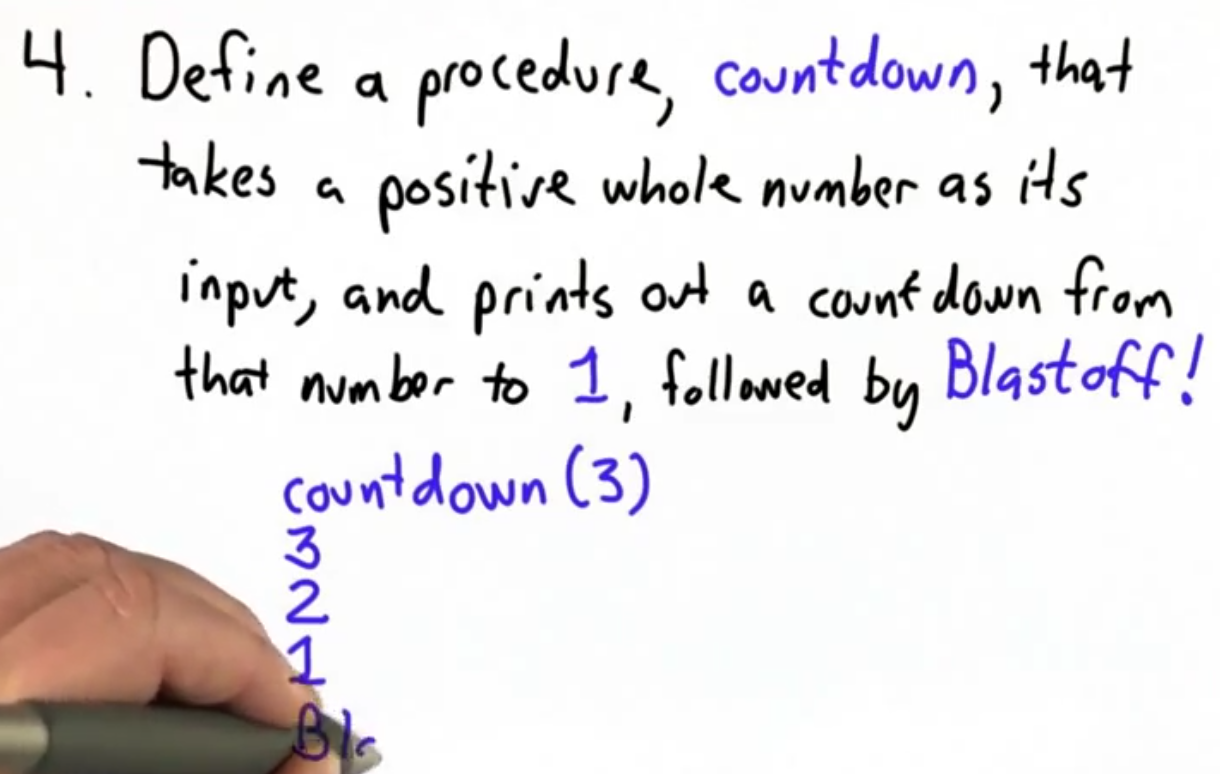 4. Define a procedure, countdown, that
takes a positive whole number as its
input, and prints out a countdown from
that number to 1, followed by Blastoff!
countdown (3)
3
2
1
Bla